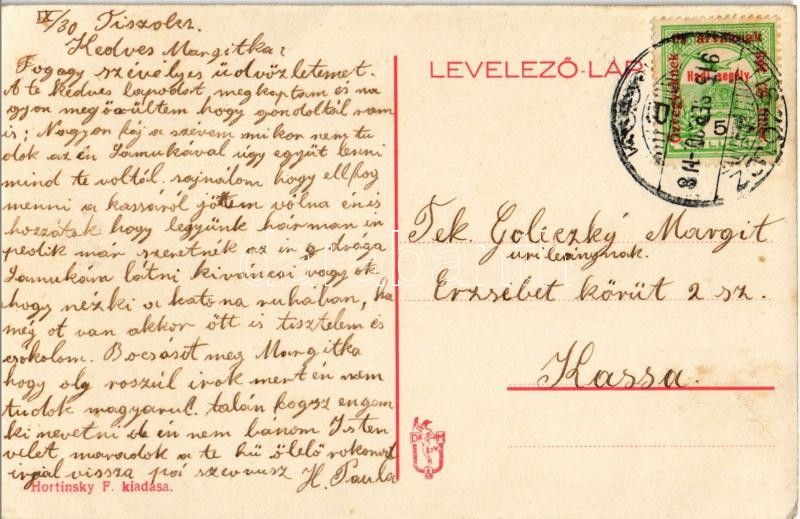 IX/30 Tiszolcz.
Kedves Margitka!
Fogagy szévélyes üdvözletemet.
A te kedves lapodat megkaptam és na
gyon megörültem hogy gondoltál ram
is; Nagyon fáj a szevem mikor nem tu
dok az én Lamukával úgy együt lenni
mind te voltál. sajnálom hogy ell fog
menni a kassáról jöttem volna én is
hozzátok hogy legyünk hárman
pedik már szeretnék az draga
Lamukám látni kiváncsi vagyok
hogy nézki a katona ruhában, ha
még ot van akkor ött is tisztelem és
csókolom. Bocsásit meg Margitka
hogy oly roszúl irok mert én nem
tudok magyarul. talán fogsz engem
ki nevetni de én nem bánom Isten
velet, maradok a te hű ölelő rokonod
vissza pá szervusz H. Paula
Hortinsky F. kiadása.
LEVELEZŐ-LAP
Özvegyeknek és árváknak két (2) fillér
Hadi segély
5
916 SEP 30
Tek. Goleczký Margit
uri leánynak.
Erzsébet körút 2 sz.
Kassa.
D M